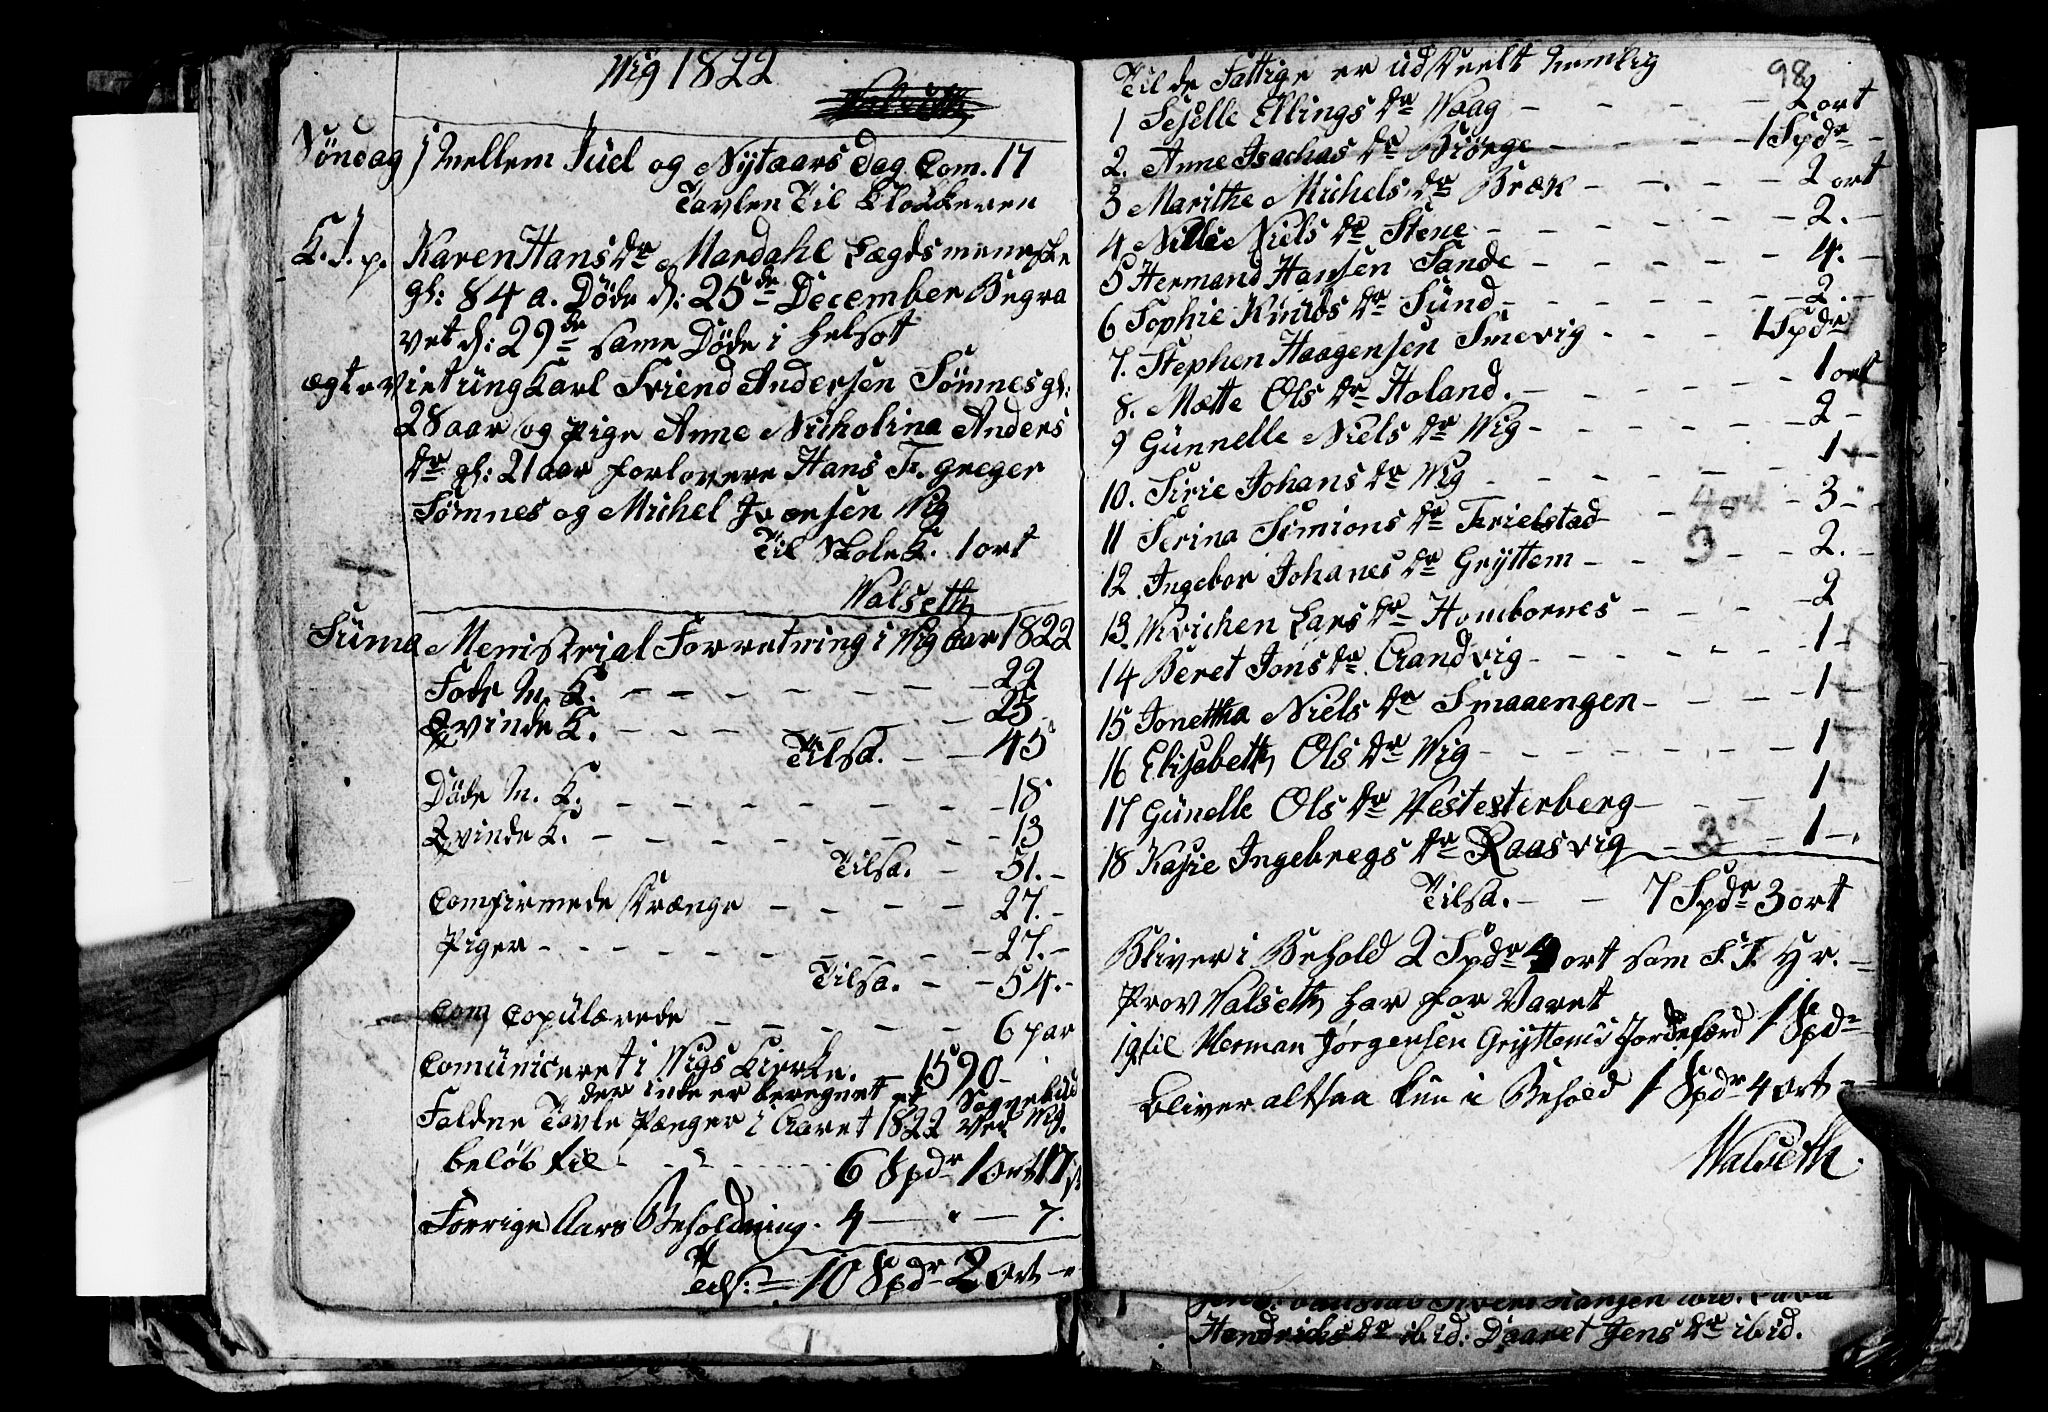 Wig 1822
Söndag j mellem Juel og Nÿtaars Dag Com. 17
Tavlen Til Klokkeren
K. J. p. Karen Hans dr Mardahl Lægdsmenneske
gl: 84 a. Döde d: 25de December Begra
vet d: 29de same Döde i helsot
ægteviet ungkarl Sviend Andersen Sömnes gl:
28 aar og pige Anne Nicholina Anders
dr gl: 21 aar forlovere Hans Fr. greger
Sömnes og Michel Iversen Wig
Til Skole K. 1 ort
Walseth
Suma Menistrial Forretning i Wig aar 1822
Föde M. K. - - - - - - - 22
Qvinde K. - - - - - - 23
Tilsa. - - 45
Döde M. K. - - - - - - - 18
Qvinde K. - - - - - - - 13
Tilsa. - 31.-
Comfirmede Drænge - - - - 27.-
Piger - - - - - - - - 27.-
Tilsa. - - 54.-
Copülærede - - - - - 6 par
Comüniceret i Wigs Kirke. - 1590-
der inde er beregnet et Sognebud
Faldne Tavle Pænger i Aaret 1822 ved Wig.
beløb til - - - - 6 Spdr 1 ort 17 s
Forrige Aars Beholdning. 4 - " - 7.
Tils: = 10 Spdr 2 ort - "
98
Til de Fattige er uddeelt nemlig
1 Seselle Ellings dr Waag - - - - - 2 ort
2. Anne Isachas dr Biörge - - - - 1 Spdr -
3 Marithe Michels dr Bræk - - . - - 2 ort
4 Nille Niels dr Stene - - - - - - 2. -
5 Hermand Hansen Sande - - - - - 4. -
6 Sophie Knuds dr Sünd - - - - - - 2. -
7. Stephen Haagensen Smevig - - - 1 Spdr
8. Mætte Ols dr Holand. - - - - - 1 ort
9 Günnelle Niels dr Wig - - - - - - 2 -
10. Sirie Johans dr Wig - - - - - - 1
11 Serina Simions dr Trielstad - 4 ort - 3 -
12 Ingebor Johanes dr Grÿttem - - 3 - - 2. -
13. Wivichen Lars dr Hombornes - - - - 2
14 Beret Jons dr Aandvig - - - - - - 1 -
15 Jonettha Niels dr Smaaengen - - - - 1
16 Elisabeth Ols dr Wig - - - - - - 1
17 Günelle Ols dr Westesterberg - - - - 1
18 Kasie Ingebregs dr Raasvig - 2 - 1 -
Tilsa. - - 7 Spdr 3 ort
Bliver i Behold 2 Spdr 4 ort som S. T. Hr. -
Prov Walseth har for Varet
19 til Herman Jørgensen Grÿttems Jordefærd 1 Spd
bliver altsaa kun i Behold 1 Spdr 4 ort -
Walseth
Hendrichs dr ibid: Daaret Jens dr ibid.